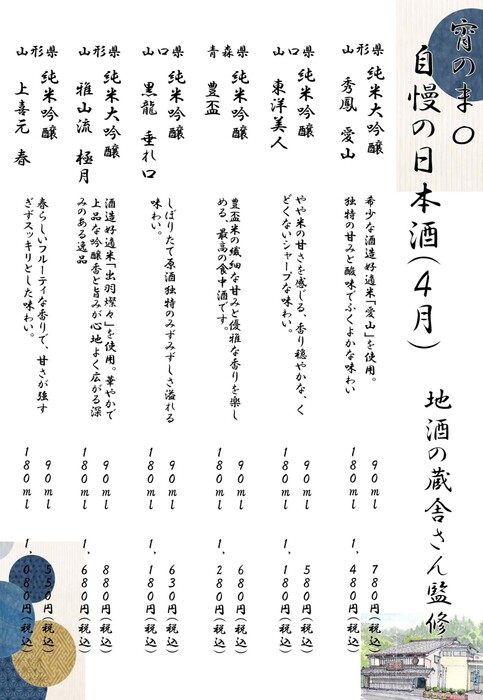 宵のま〇
自慢の日本酒(4月)
地酒の蔵舎さん監修
山形県
純米大吟醸
秀鳳 愛山
希少な酒造好適米「愛山」を使用。
独特の甘みと酸味でふくよかな味わい
90ml 780円(税込)
180ml 1,480円(税込)
山口県
純米吟醸
東洋美人
やや米の甘さを感じる、香り穏やかな、く
どくないシャープな味わい。
90ml 580円(税込)
180ml 1,180円(税込)
青森県
純米吟醸
豊盃
豊盃米の繊細な甘みと優雅な香りを楽し
める、最高の食中酒です。
90ml 680円(税込)
180ml 1,280円(税込)
山口県
純米吟醸
黒龍 垂れ口
しぼりたて原酒独特のみずみずしさ溢れる
味わい。
90ml 630円(税込)
180ml 1,180円(税込)
山形県
純米大吟醸
雅山流 極月
酒造好適米「出羽燦々」を使用。華やかで
上品な吟醸香と旨みが心地よく広がる深
みのある逸品
90ml 880円(税込)
180ml 1,680円(税込)
山形県
純米吟醸
上喜元 春
春らしいフルーティな香りで、甘さが強す
ぎずスッキリとした味わい。
90ml 550円(税込)
180ml 1,080円(税込)